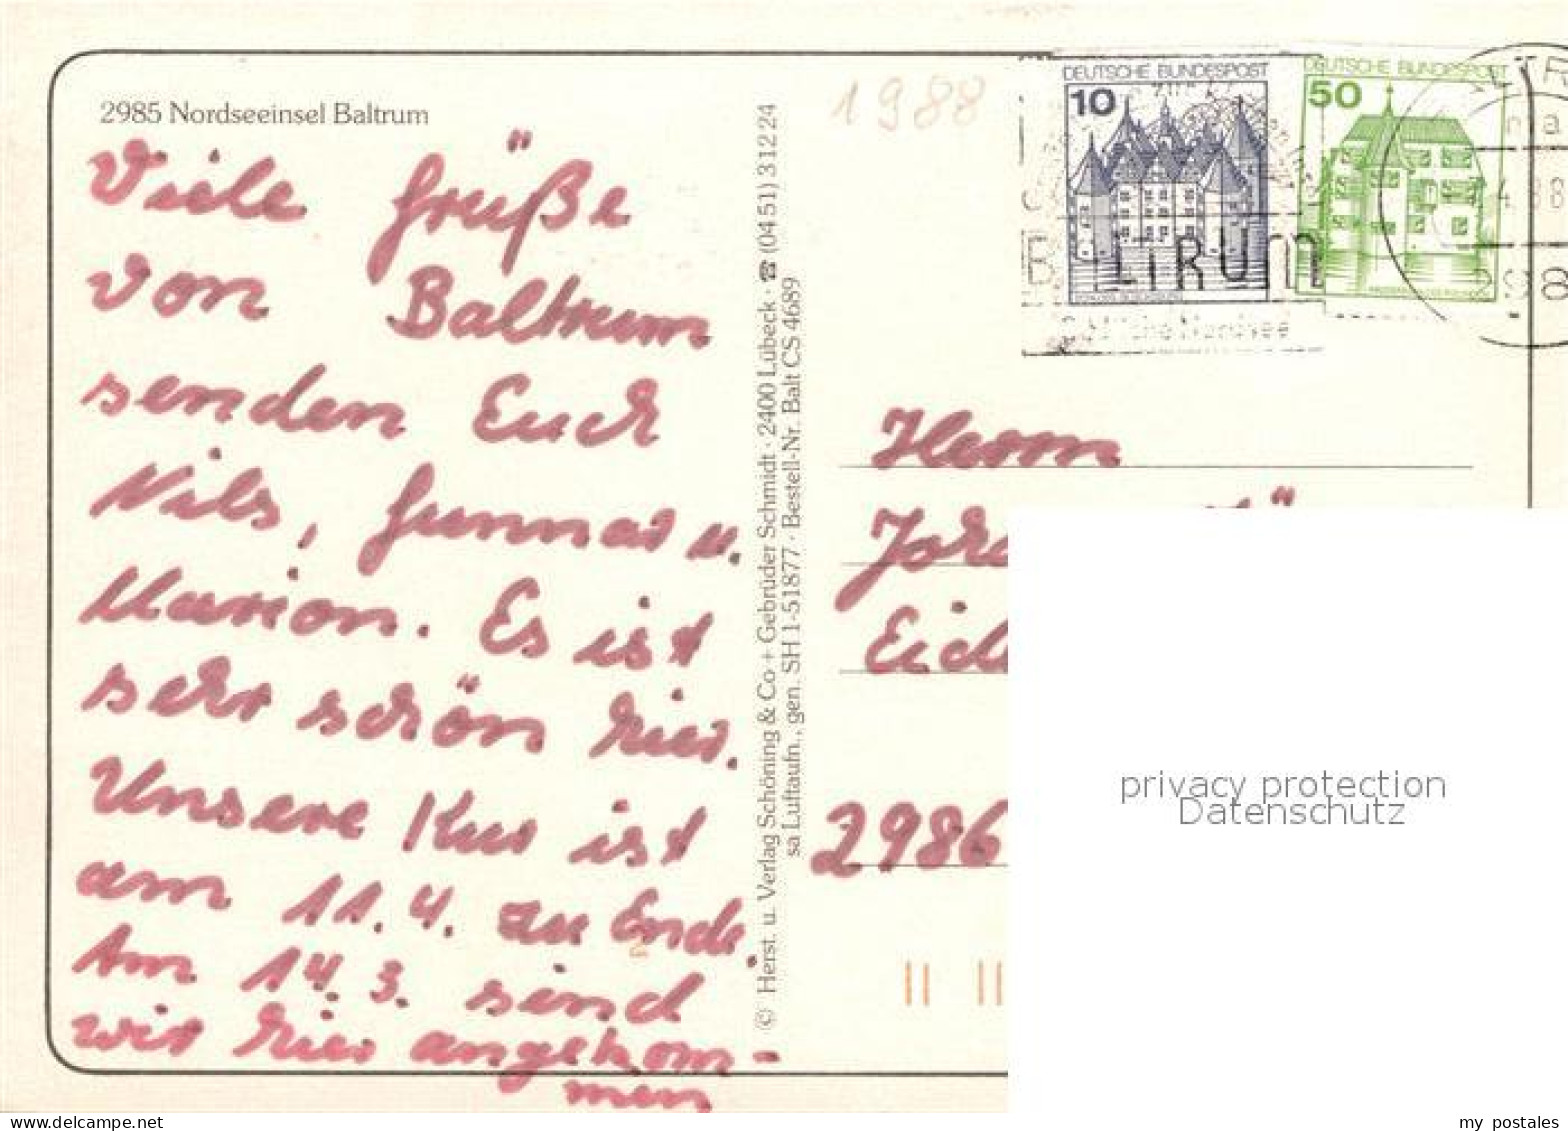 2985 Nordseeinsel Baltrum
Viele Grüße
von Baltrum
senden Euch
Nils, Gunnar u.
Marion. Es ist
sehr schön hier.
Unsere Kur ist
am 11.4. zu Ende.
Am 14.3. sind
wir hier angekom-
men
© Herst. u. Verlag Schöning & Co + Gebrüder Schmidt · 2400 Lübeck · ☎ (0451) 3 12 24
sa Luftaufn., gen. SH 1-51877 · Bestell-Nr. Balt CS 4689
1988
DEUTSCHE BUNDESPOST
10
DEUTSCHE BUNDESPOST
50
Herrn
2986
privacy protection
Datenschutz
my postales